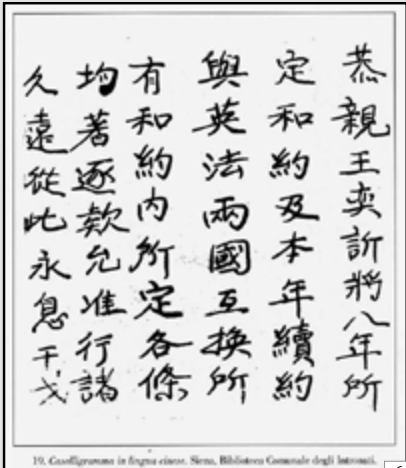 恭親王奕訢將八年所
定和約及本年續約
與英法兩國互換所
有和約內所定各條
均著逐款允准行諸
久遠從此永息干戈
19. Calligramma in lingua cinese. Siena, Biblioteca Comunale degli Intronati.